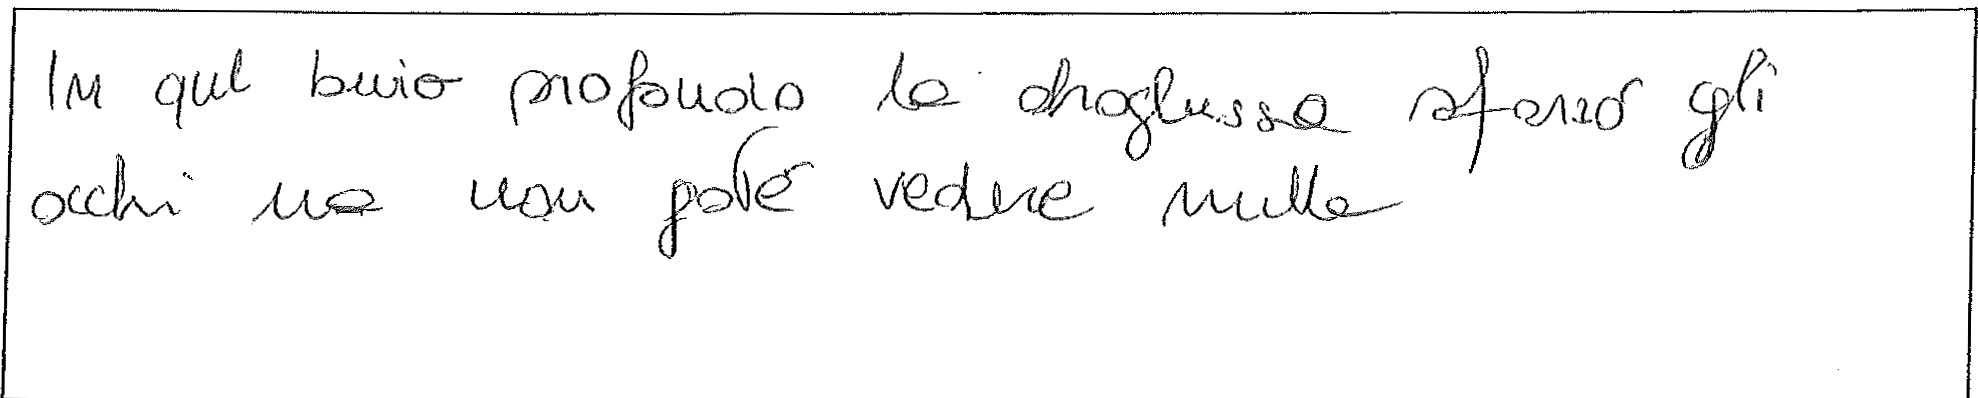 In quel buio profondo la droghessa sforzò gli
occhi ma non poté vedere nulla